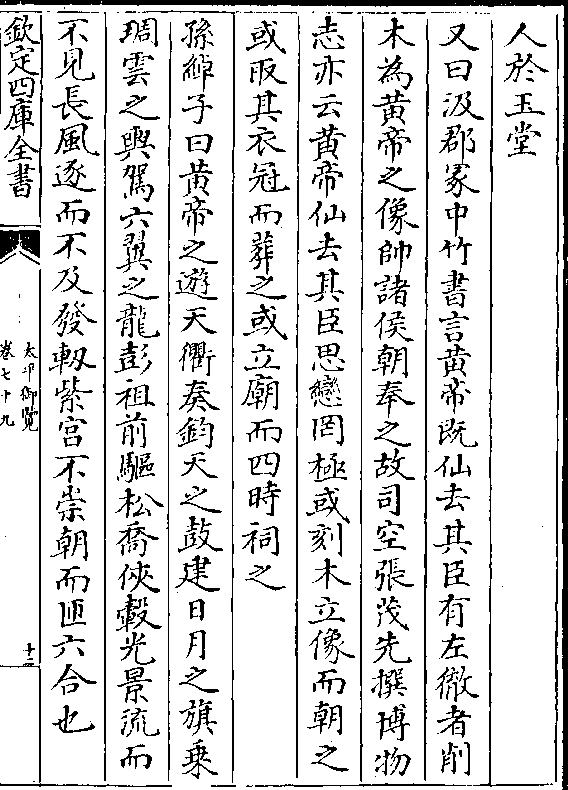 人於玉堂
又曰汲郡冢中竹書言黄帝既仙去其臣有左徹者削
木為黄帝之像帥諸侯朝奉之故司空張茂先撰博物
志亦云黄帝仙去其臣思戀罔極或刻木立像而朝之
或取其衣冠而葬之或立廟而四時祠之
孫綽子曰黄帝之遊天衢奏鈞天之鼓建日月之旗乗
琱雲之輿駕六翼之龍彭祖前驅松喬俠轂光景流而
不見長風逐而不及發軔紫宫不崇朝而匝六合也
欽定四庫全書
太平御覧
卷七十九
十二